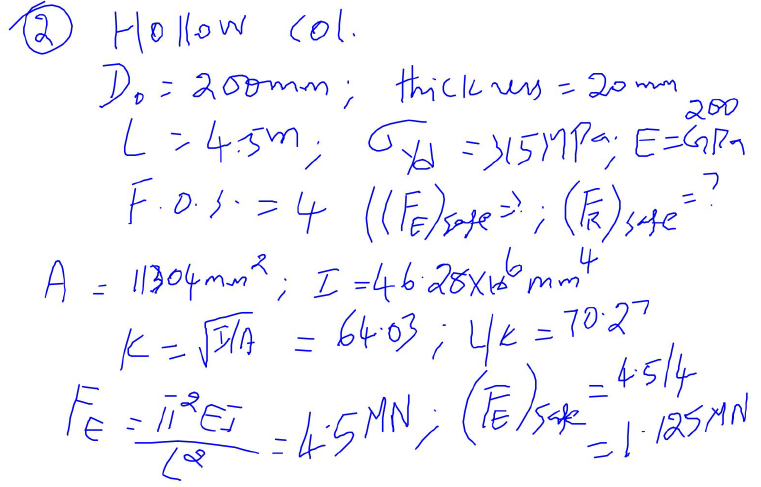 ② Hollow col.
D₀ = 200mm; thickness = 20mm
L = 4.5m; σyd = 315MPa; E = 200 GPa
F.O.S. = 4 ((F_E)safe = ?; (F_R)safe = ?
A = 11304mm²; I = 46.28×10⁶ mm⁴
K = √I/A = 64.03; L/K = 70.27
F_E = π²EI/L² = 4.5MN; (F_E)safe = 4.5/4
= 1.125MN